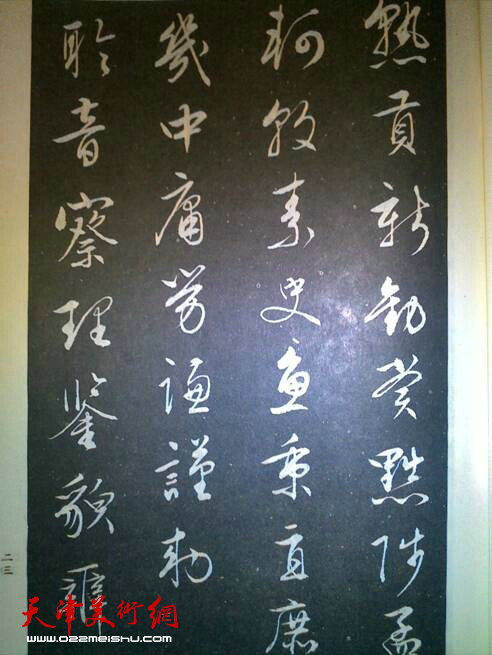 熟貢新勸賞黜陟孟
軻敦素史魚秉直庶
幾中庸勞謙謹勅
聆音察理鑒貌辨
二三
天津美術網
www.022meishu.com